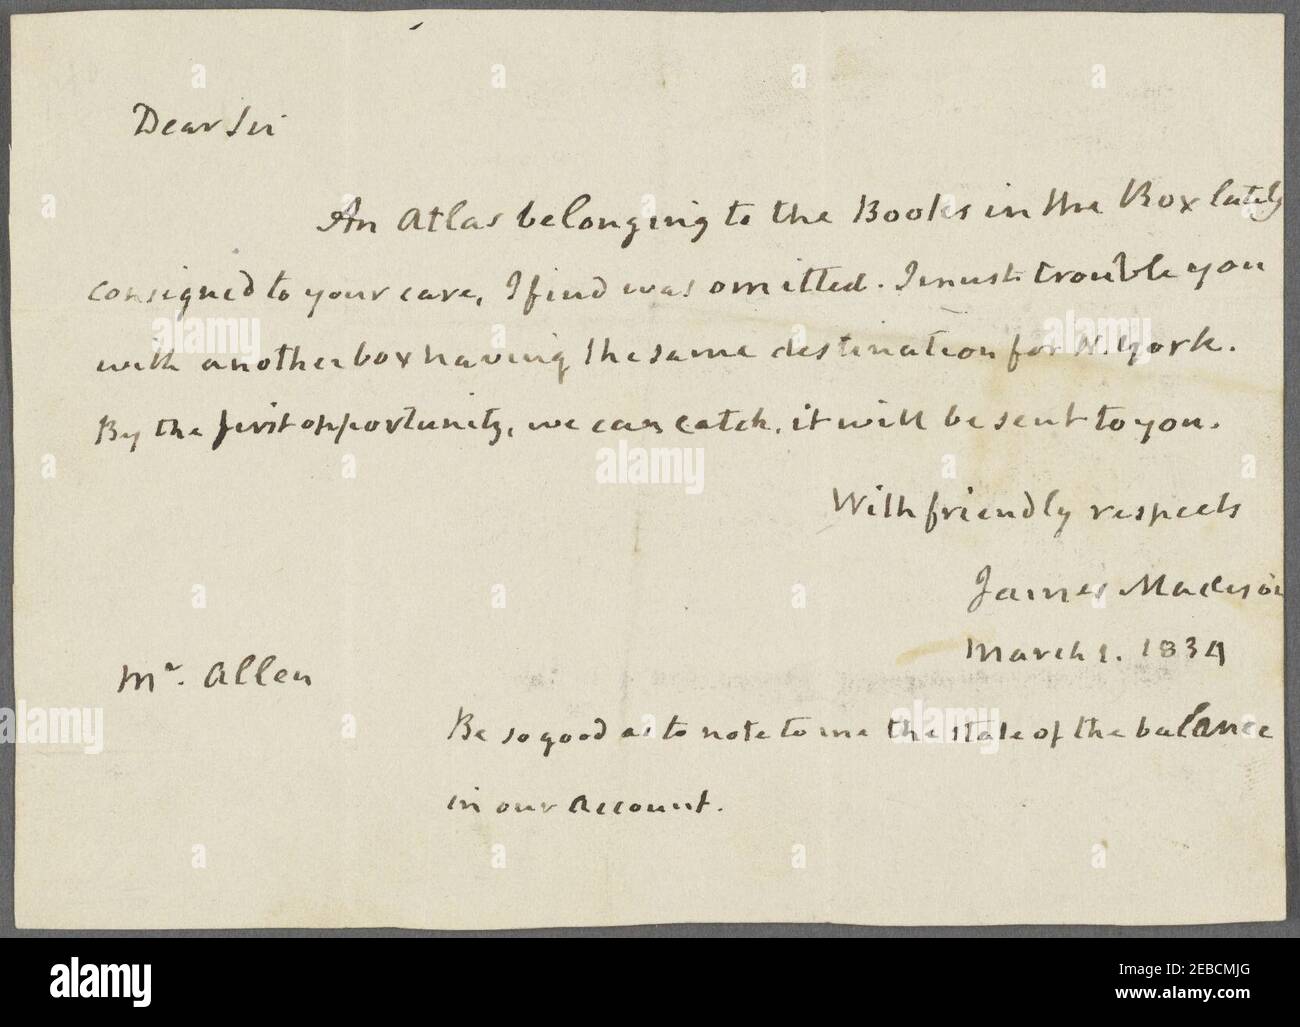 Dear Sir
An Atlas belonging to the Books in the Box lately
consigned to your care, I find was omitted. I must trouble you
with another box having the same destination for N. York.
By the first opportunity, we can catch, it will be sent to you.
With friendly respects
James Madison
March 1. 1834
Mr. Allen
Be so good as to note to me the state of the balance
in our account.
alamy
Image ID: 2EBCMJG
www.alamy.com